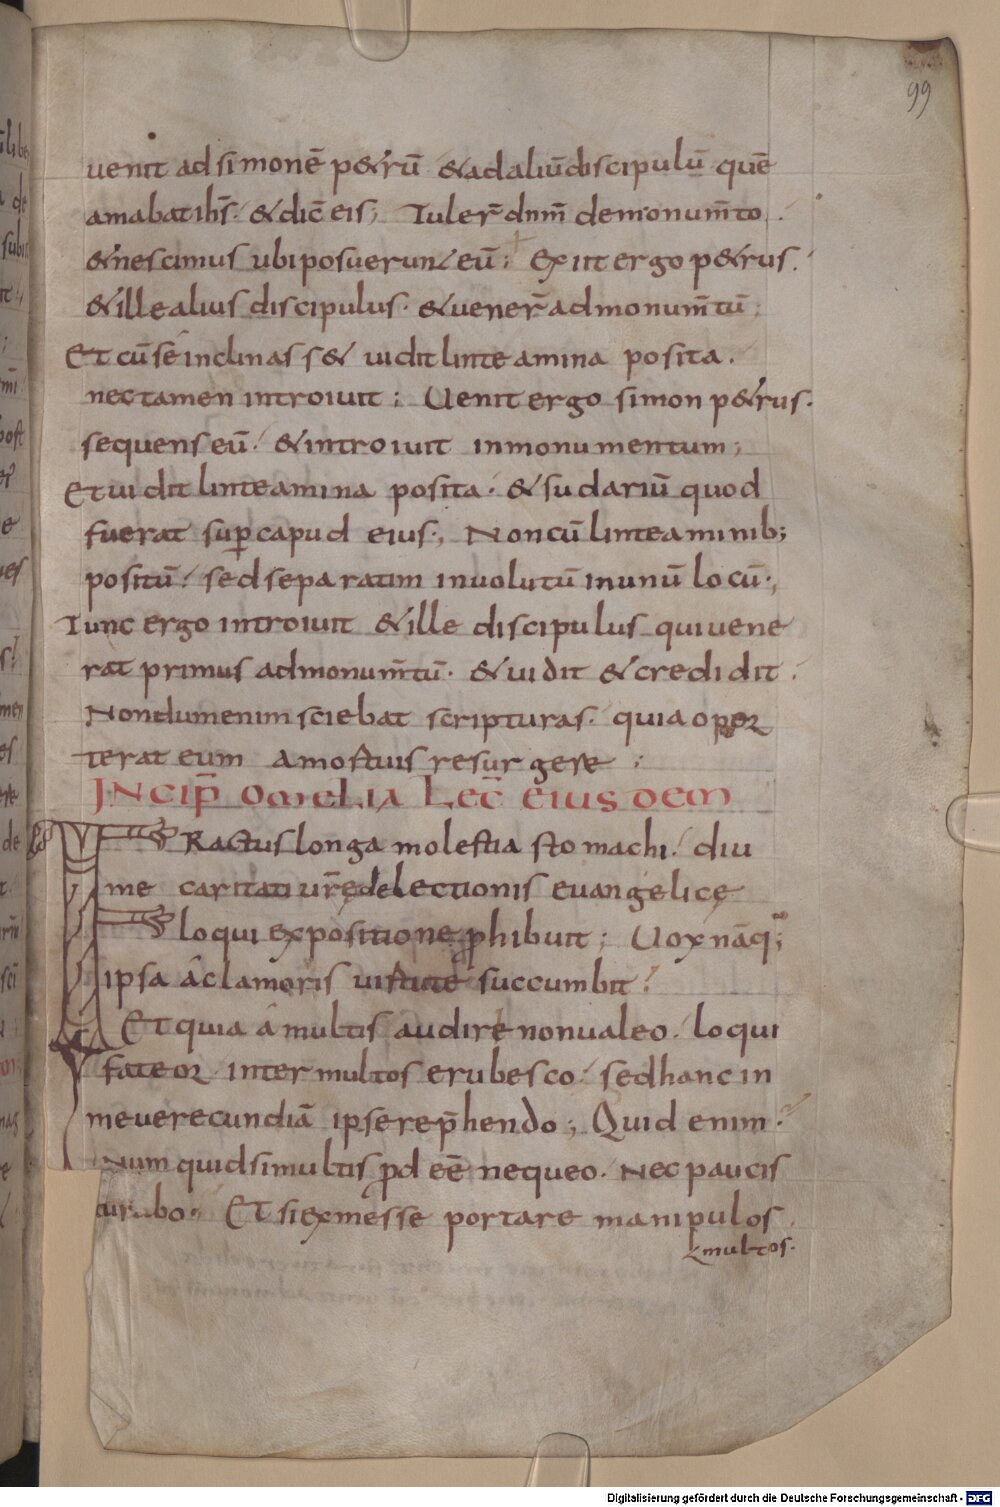 99
uenit ad simonē p&rū & ad aliū discipulū quē
amabat ih̄s. & dic̄ eis; Tuler̄ dnm̄ de monum̄to.
& nescimus ubi posuerunt eū; Exiit ergo p&rus.
& ille alius discipulus. & uener̄ ad monum̄tū;
Et cū se inclinass& uidit linteamina posita.
nec tamen introiuit; Uenit ergo simon p&rus.
sequens eū. & introiuit in monumentum;
Et uidit linteamina posita. & sudariū quod
fuerat sup̄ capud eius; Non cū linteaminib;
positū. sed separatim inuolutū in unū locū;
Tunc ergo introiuit & ille discipulus qui uene
rat primus ad monum̄tū. & uidit & credidit.
Nondum enim sciebat scripturas. quia opor
terat eum a mortuis resurgere;
INCIP̄ OMELIA LEC̄ EIUSDEM
FRactus longa molestia stomachi. diu
me caritati ur̄ę de lectionis euangelicę
loqui expositione p̱hibuit; Uox nāq;
ipsa a clamoris uirtute succumbit.
Et quia a multis audire non ualeo. loqui
fateor inter multos erubesco. sed hanc in
me uerecundiā ipse rep̄hendo; Quid enim.
Num quid si multis p̱d eē nequeo. Nec paucis
curabo. Et si ex messe portare manipulos
multos.
Digitalisierung gefördert durch die Deutsche Forschungsgemeinschaft - DFG